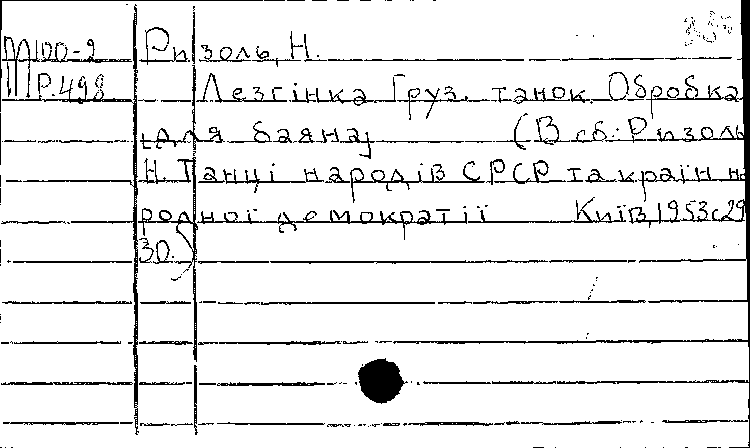 М100-2 Ризоль, Н.
Р.498 Лезгінка Груз. танок Обробка
[для баяна] (В сб.: Ризоль
Н. Танці народів СРСР та країн на
родної демократії Київ, 1953 с 29
30.)